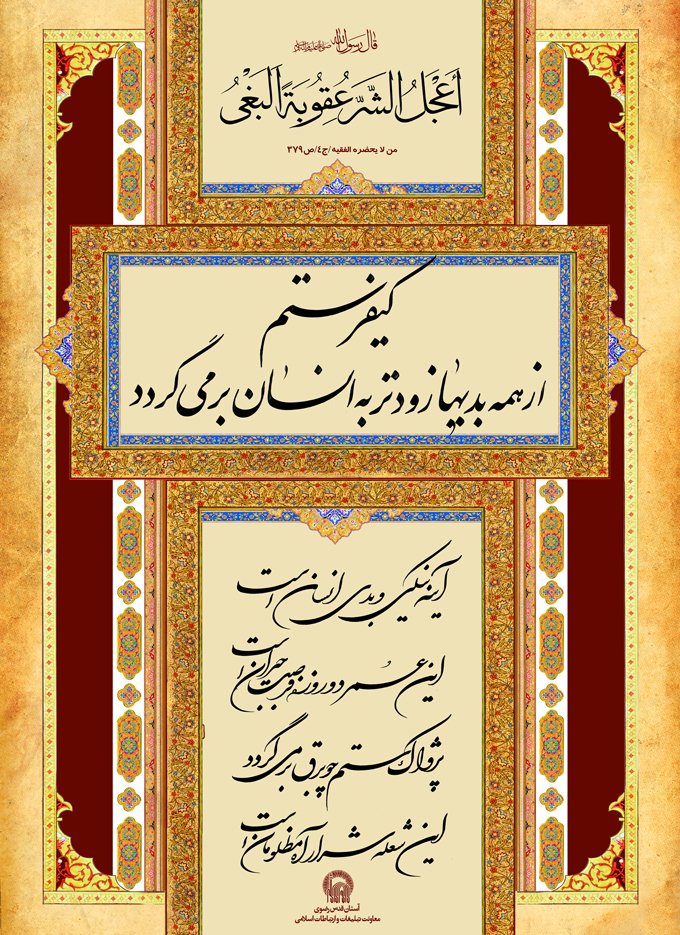 قال رسول الله صلی الله علیه و آله
أَعْجَلُ الشَّرِّ عُقُوبَةً الْبَغْیُ
من لا یحضره الفقیه/ج٤/ص٣٧٩
کیفر ستم
از همه بدیها زودتر به انسان برمی گردد
آینه نیکی و بدی انسان است
این عمر دو روزه فرصت جبران است
پژواک ستم چو برق برمی گردد
این شعله شرار آه مظلومان است
آستان قدس رضوی
معاونت تبلیغات و ارتباطات اسلامی